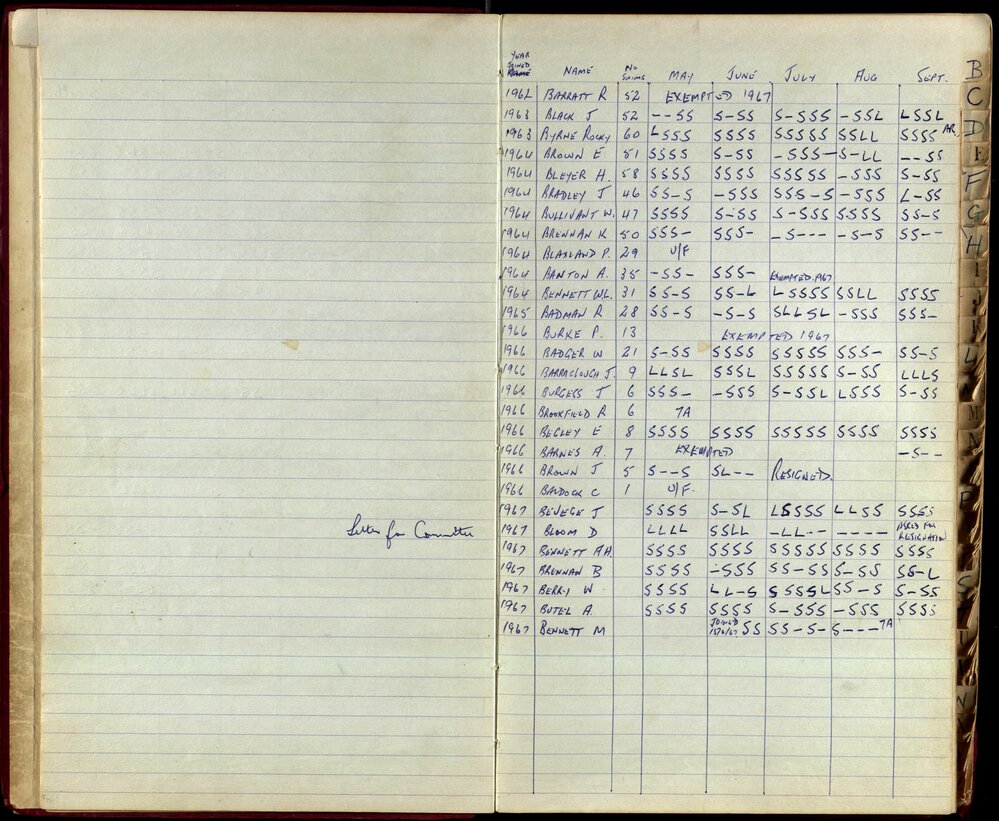 YEAR JOINED NAME NO SWIMS MAY JUNE JULY AUG SEPT.
1962 BARRATT R 52 EXEMPTED 1967
1963 BLACK J 52 --SS S-SS S-SSS -SSL LSSL
1963 BYRNE ROCKY 60 LSSS SSSS SSSSS SSLL SSSS AR.
1964 BROWN E 51 SSSS S-SS -SSS- S-LL --SS
1964 BLEYER H. 58 SSSS SSSS SSSSS -SSS S-SS
1964 BRADLEY J 46 SS-S -SSS SSS-S -SSS L-SS
1964 BULLIVANT W. 47 SSSS S-SS S-SSS SSSS SS-S
1964 BRENNAN K 50 SSS- SSS- -S--- -S-S SS--
1964 BLAXLAND P. 29 U/F
1964 BANTON A. 35 -SS- SSS- EXEMPTED 1967
1964 BENNETT W.L. 31 SS-S SS-L LSSSS SSLL SSSS
1965 BADMAN R 28 SS-S -S-S SLLSL -SSS SSS-
1966 BURKE P. 13 EXEMPTED 1967
1966 BADGER W 21 S-SS SSSS SSSSS SSS- SS-S
1966 BARRACLOUGH J 9 LLSL SSSL SSSSS S-SS LLLS
1966 BURGESS J 6 SSS- -SSS S-SSL LSSS S-SS
1966 BROOKFIELD R 6 7A
1966 BEGLEY E 8 SSSS SSSS SSSSS SSSS SSSS
1966 BARNES A. 7 EXEMPTED -S--
1966 BROWN J 5 S--S SL-- RESIGNED.
1966 BALDOCK C 1 U/F.
1967 BEVEGE J SSSS S-SL LSSSS LLSS SSSS
Letter from Committee 1967 BLOOM D LLLL SSLL -LL-- ---- ASKED FOR RESIGNATION
1967 BENNETT A.H. SSSS SSSS SSSSS SSSS SSSS
1967 BRENNAN B SSSS -SSS SS-SS S-SS SS-L
1967 BERRY W SSSS LL-S SSSSL SS-S S-SS
1967 BUTEL A. SSSS SSSS S-SSS -SSS SSSS
1967 BENNETT M JOINED SS SS-S- S---- 7A
B
C
D
E
F
G
H
I
J
K
L
M
N
P
S
T
W